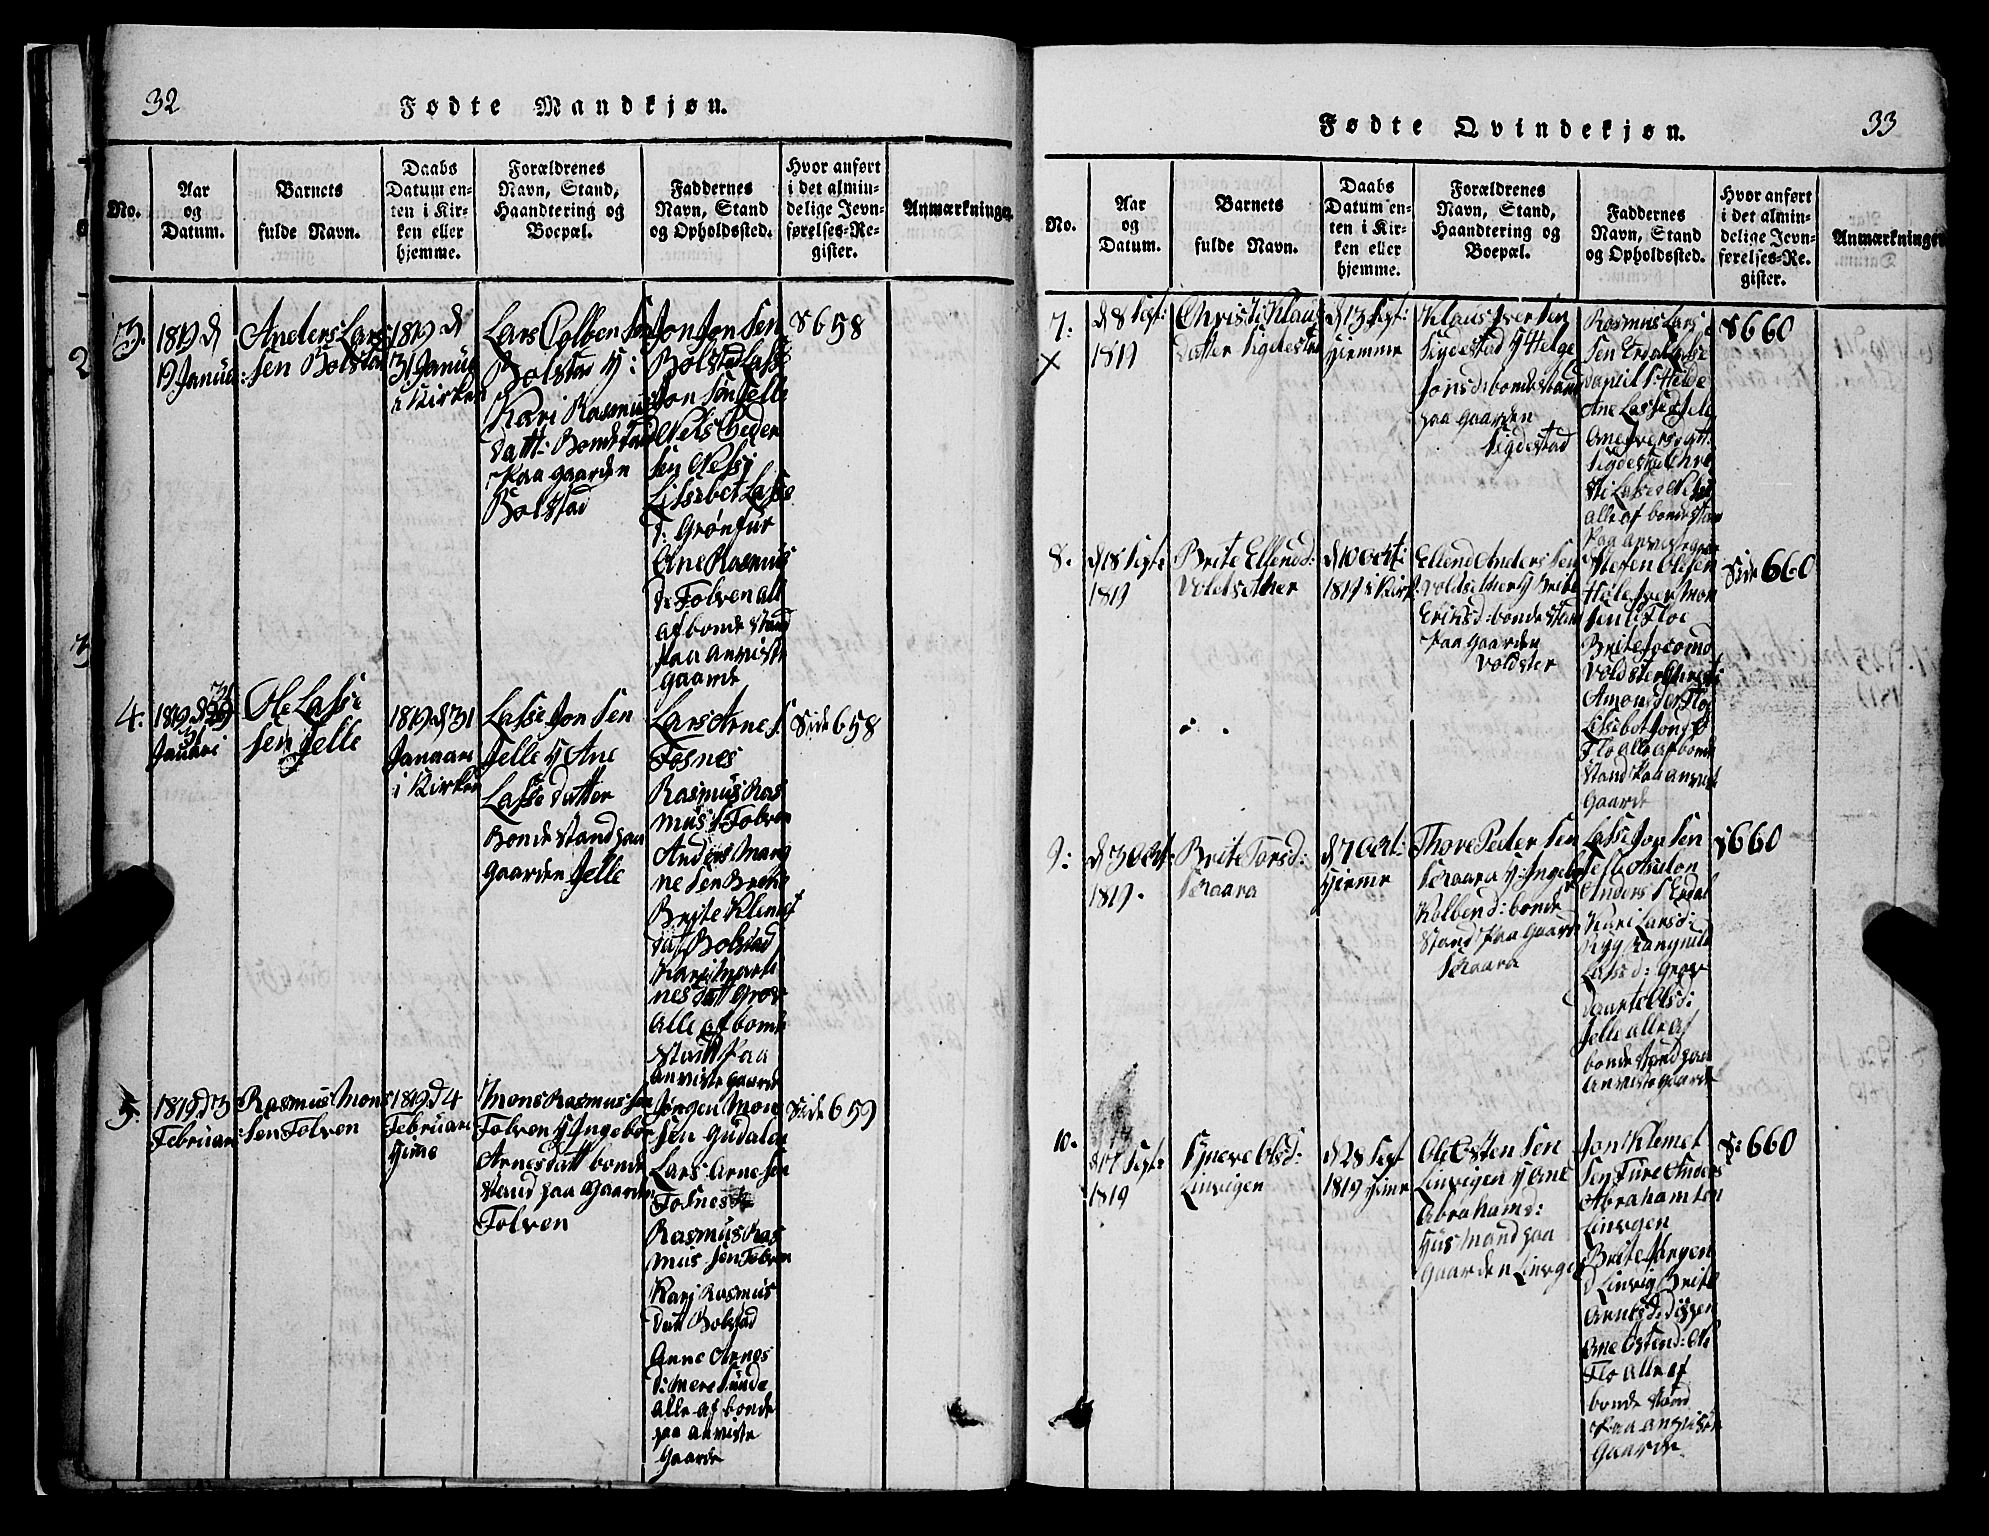 32
Fødte Mandkjøn.
No.
Aar
og
Datum.
Barnets
fulde Navn.
Daabs
Datum en-
ten i Kir-
ken eller
hjemme.
Forældrenes
Navn, Stand,
Haandtering og
Boepæl.
Faddernes
Navn, Stand
og Opholdssted.
Hvor anført
i det almin-
delige Jevn-
førelses-Re-
gister.
Anmærkninger.
3.
1819 d
19 Januar
Anders Lars
sen Bolstad
1819 d
31 Januar
i Kirken
Lars Colbensen
Bolstad H:
Kari Rasmus
datt: Bondestand
paa gaarden
Bolstad
Jon Jonsen
Bolstad Lasse
Jonsen Jelle
Nels Peder
sen Nessj
Lisabet Lasse
d: Grønfur
Ane Rasmus
d: Folven alle
af bondestand
paa anviste
gaarde
S 658
4.
1819 d
Januari
Ole Lasse
sen Jelle
1819 d 31
Januari
i Kirken
Lasse Jonsen
Jelle H Ane
Lasse datter
Bondestand paa
gaarden Jelle
Lars Arne s
Fosnes
Rasmus Ras
mus s Folven
Anders Mag
ne sen Brene
Brite Klemet
dat Bolstad
Kari Mart
nes datt Grov
alle af bonde
stand paa
anviste gaarde
Side 658
5.
1819 d 3
Februari
Rasmus Mons
sen Folven
1819 d 4
Februari
Hjeme
Mons Rasmussen
Folven H Ingebor
Arnesdatt bonde
stand paa gaarden
Folven
Jørgen Mon
sen Gudalen
Lars Arnesen
Fosnes
Rasmus Ras
mussen Folven
Karj Rasmus
datt Bolstad
Anne Arnes
d: Mere Sunde
alle af bonde
paa anviste
gaarde
Side 659
33
Fødte Qvindekjøn.
No.
Aar
og
Datum.
Barnets
fulde Navn.
Daabs
Datum en-
ten i Kir-
ken eller
hjemme.
Forældrenes
Navn, Stand,
Haandtering og
Boepæl.
Faddernes
Navn, Stand
og Opholdssted.
Hvor anført
i det almin-
delige Jevn-
førelses-Re-
gister.
Anmærkninger
7.
x
d 8 Sept:
1819
Christi Klaus
datter Sigdestad
d 13 Sept:
Hjemme
Klaus Iversen
Sigdestad H Helge
Jonsd: bondestand
paa gaarden
Sigdestad
Rasmus Lars
sen Erdal Lasse
Daniel s: Helde
Ane Lassed Jelle
Ane Iversdatt:
Sigdestad Chri
sti Lassed Nessj
alle af bondestand
paa anviste gaar
S 660
8.
d 18 Sept:
1819
Brite Ellend:
Voldsether
d 10 oct:
1819 i Kirk
Ellend Anderssen
Voldsether H Brite
Eriksd: bondestand
paa gaarden
Voldster
Steffen Olesen
Hole Iver Mon
sen Floe
Brite Jocomd
Voldster Christi
Amonsd: Floe
Lisebet Jonsd
Flo alle af bonde
stand paa anviste
gaarde
Side 660
9:
d 3 Oct:
1819.
Brite Torsd:
Skaara
d 7 Oct:
Hjeme
Thore Peder sen
Skaara H: Ingebor
Kolbend: bonde
stand paa Gaard
Skaara
Lasse Jonsen
Jelle
Anders s Erdal
Kari Larsd:
Ryg Rangnild
Lassd: Grov
Daarte Olsd:
Jelle alle af
bondestand paa
anviste gaarde
S 660
10.
d 14 Sept:
1819
Synneve Olsd:
Linvigen
d 28 Sept
1819 Hjeme
Ole Ostensen
Linvigen H Ane
Abrahams:
Husmand paa
Gaarden Linvigen
Jon Klemet
sen Ture Anders
Abrahamsen
Linvgen
Brite Jørgen
d Linvig Brite
Arnesd:
Ane Ostend: Ols
Flo alle af
bondestand
paa anviste
Gaarde
S: 660